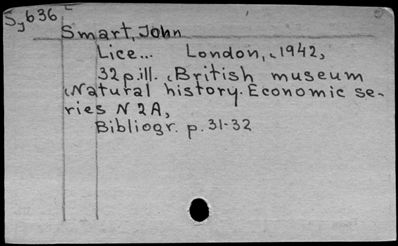 Sj636
Smart, John
Lice... London, 1942,
32p.ill. British museum
Natural history. Economic se-
ries N 2A,
Bibliogr. p. 31-32